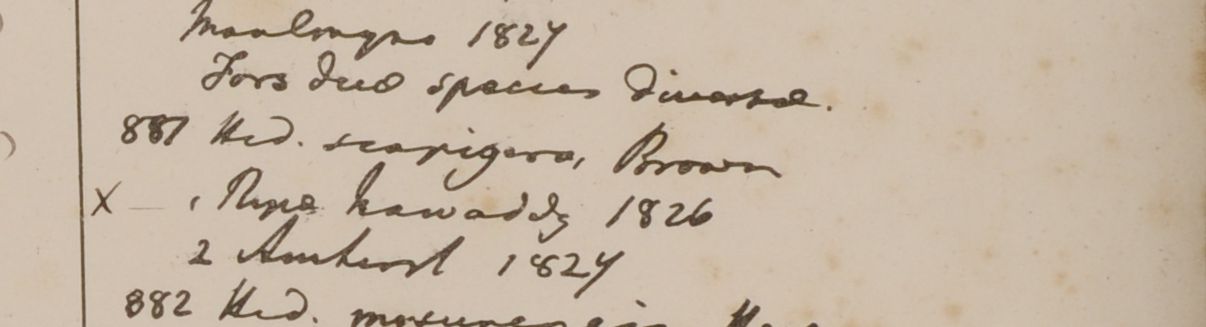 Moulmyne 1827
Fors duo species diversae.
881 Hed. scapigera, Brown
X — 1 Ripa Irawaddy 1826
2 Amherst 1827
882 Hed.